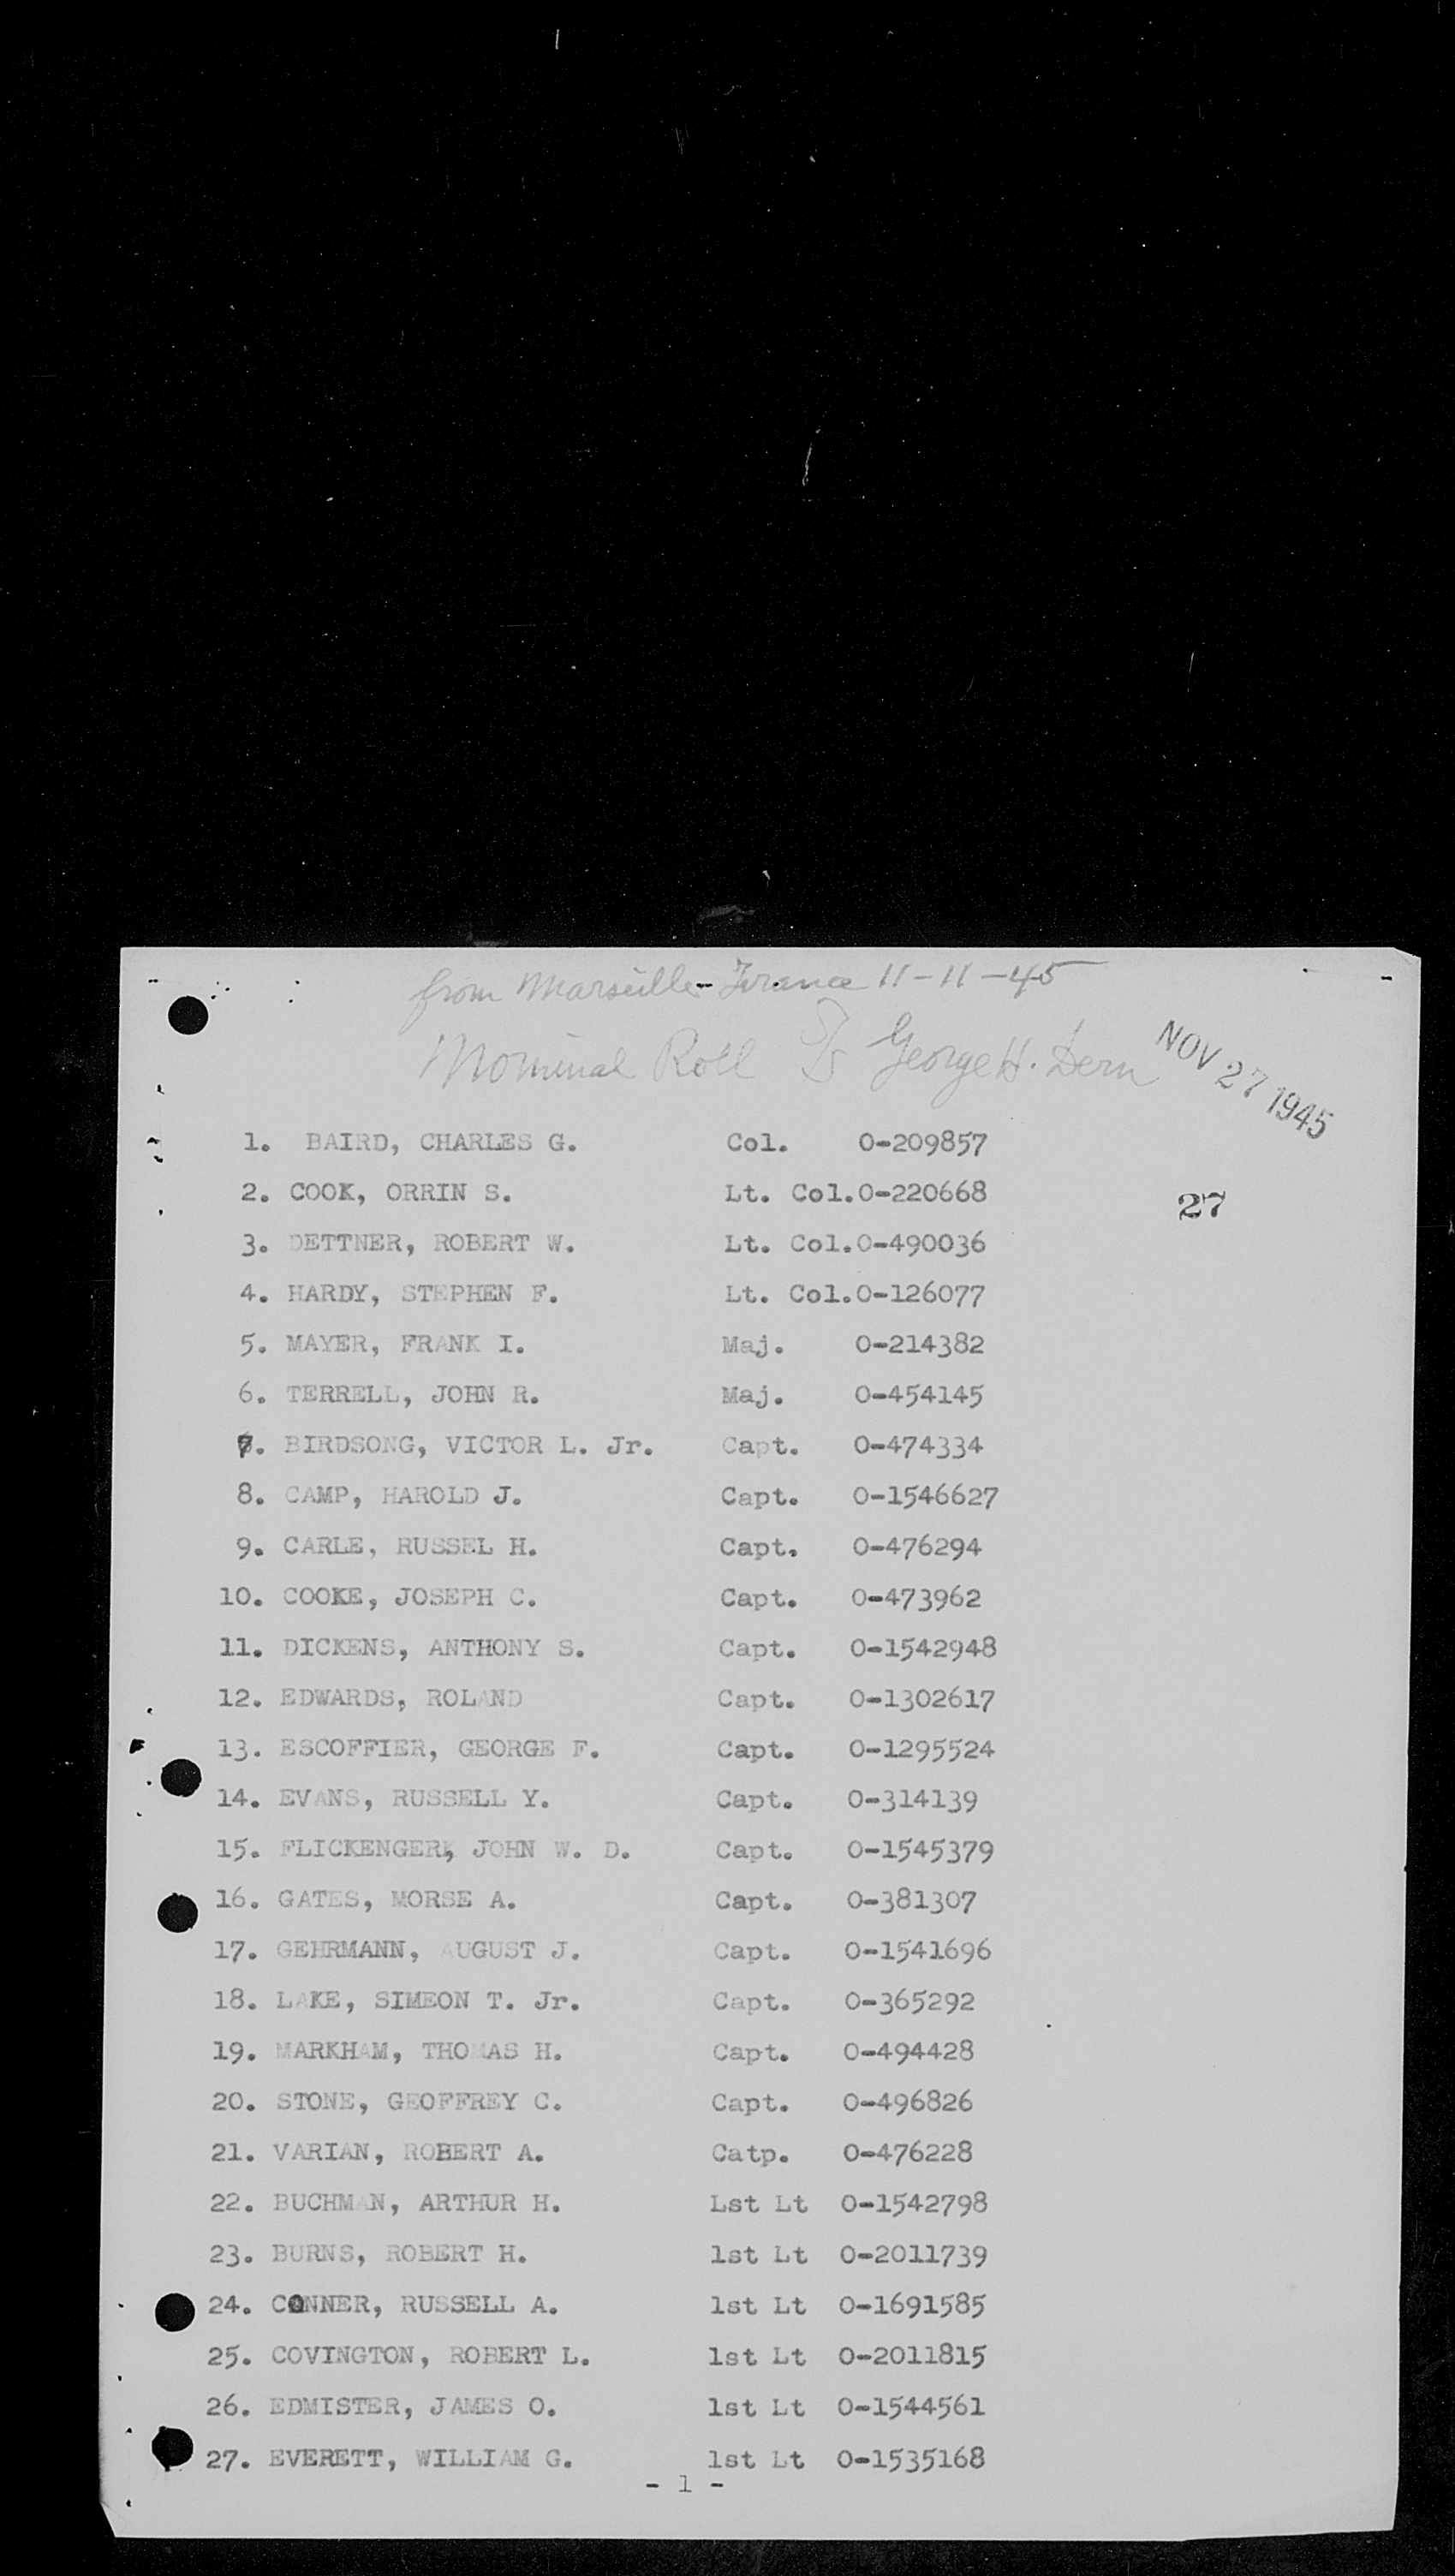 from Marseille - France 11-11-45
Nominal Roll S/S George H. Dern
NOV 27 1945
1. BAIRD, CHARLES G. Col. O-209857
2. COOK, ORRIN S. Lt. Col. O-220668
27
3. DETTNER, ROBERT W. Lt. Col. O-490036
4. HARDY, STEPHEN F. Lt. Col. O-126077
5. MAYER, FRANK I. Maj. O-214382
6. TERRELL, JOHN R. Maj. O-454145
7. BIRDSONG, VICTOR L. Jr. Capt. O-474334
8. CAMP, HAROLD J. Capt. O-1546627
9. CARLE, RUSSEL H. Capt. O-476294
10. COOKE, JOSEPH C. Capt. O-473962
11. DICKENS, ANTHONY S. Capt. O-1542948
12. EDWARDS, ROLAND Capt. O-1302617
13. ESCOFFIER, GEORGE F. Capt. O-1295524
14. EVANS, RUSSELL Y. Capt. O-314139
15. FLICKENGER, JOHN W. D. Capt. O-1545379
16. GATES, MORSE A. Capt. O-381307
17. GEHRMANN, AUGUST J. Capt. O-1541696
18. LAKE, SIMEON T. Jr. Capt. O-365292
19. MARKHAM, THOMAS H. Capt. O-494428
20. STONE, GEOFFREY C. Capt. O-496826
21. VARIAN, ROBERT A. Catp. O-476228
22. BUCHMAN, ARTHUR H. Lst Lt O-1542798
23. BURNS, ROBERT H. 1st Lt O-2011739
24. CONNER, RUSSELL A. 1st Lt O-1691585
25. COVINGTON, ROBERT L. 1st Lt O-2011815
26. EDMISTER, JAMES O. 1st Lt O-1544561
27. EVERETT, WILLIAM G. 1st Lt O-1535168
- 1 -